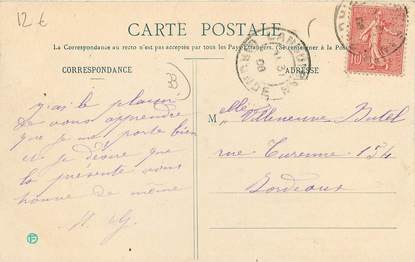 12 €
CARTE POSTALE
La Correspondance au recto n'est pas acceptée par tous les Pays Etrangers. (Se renseigner à la Poste)
CORRESPONDANCE
ADRESSE
88
J'ai le plaisir
de vous apprendre
que je me porte bien
et je désire que
la présente vous
trouve de même
M. G.
M elle Villeneuve Butel
rue Turenne 154
Bordeaux
10
E